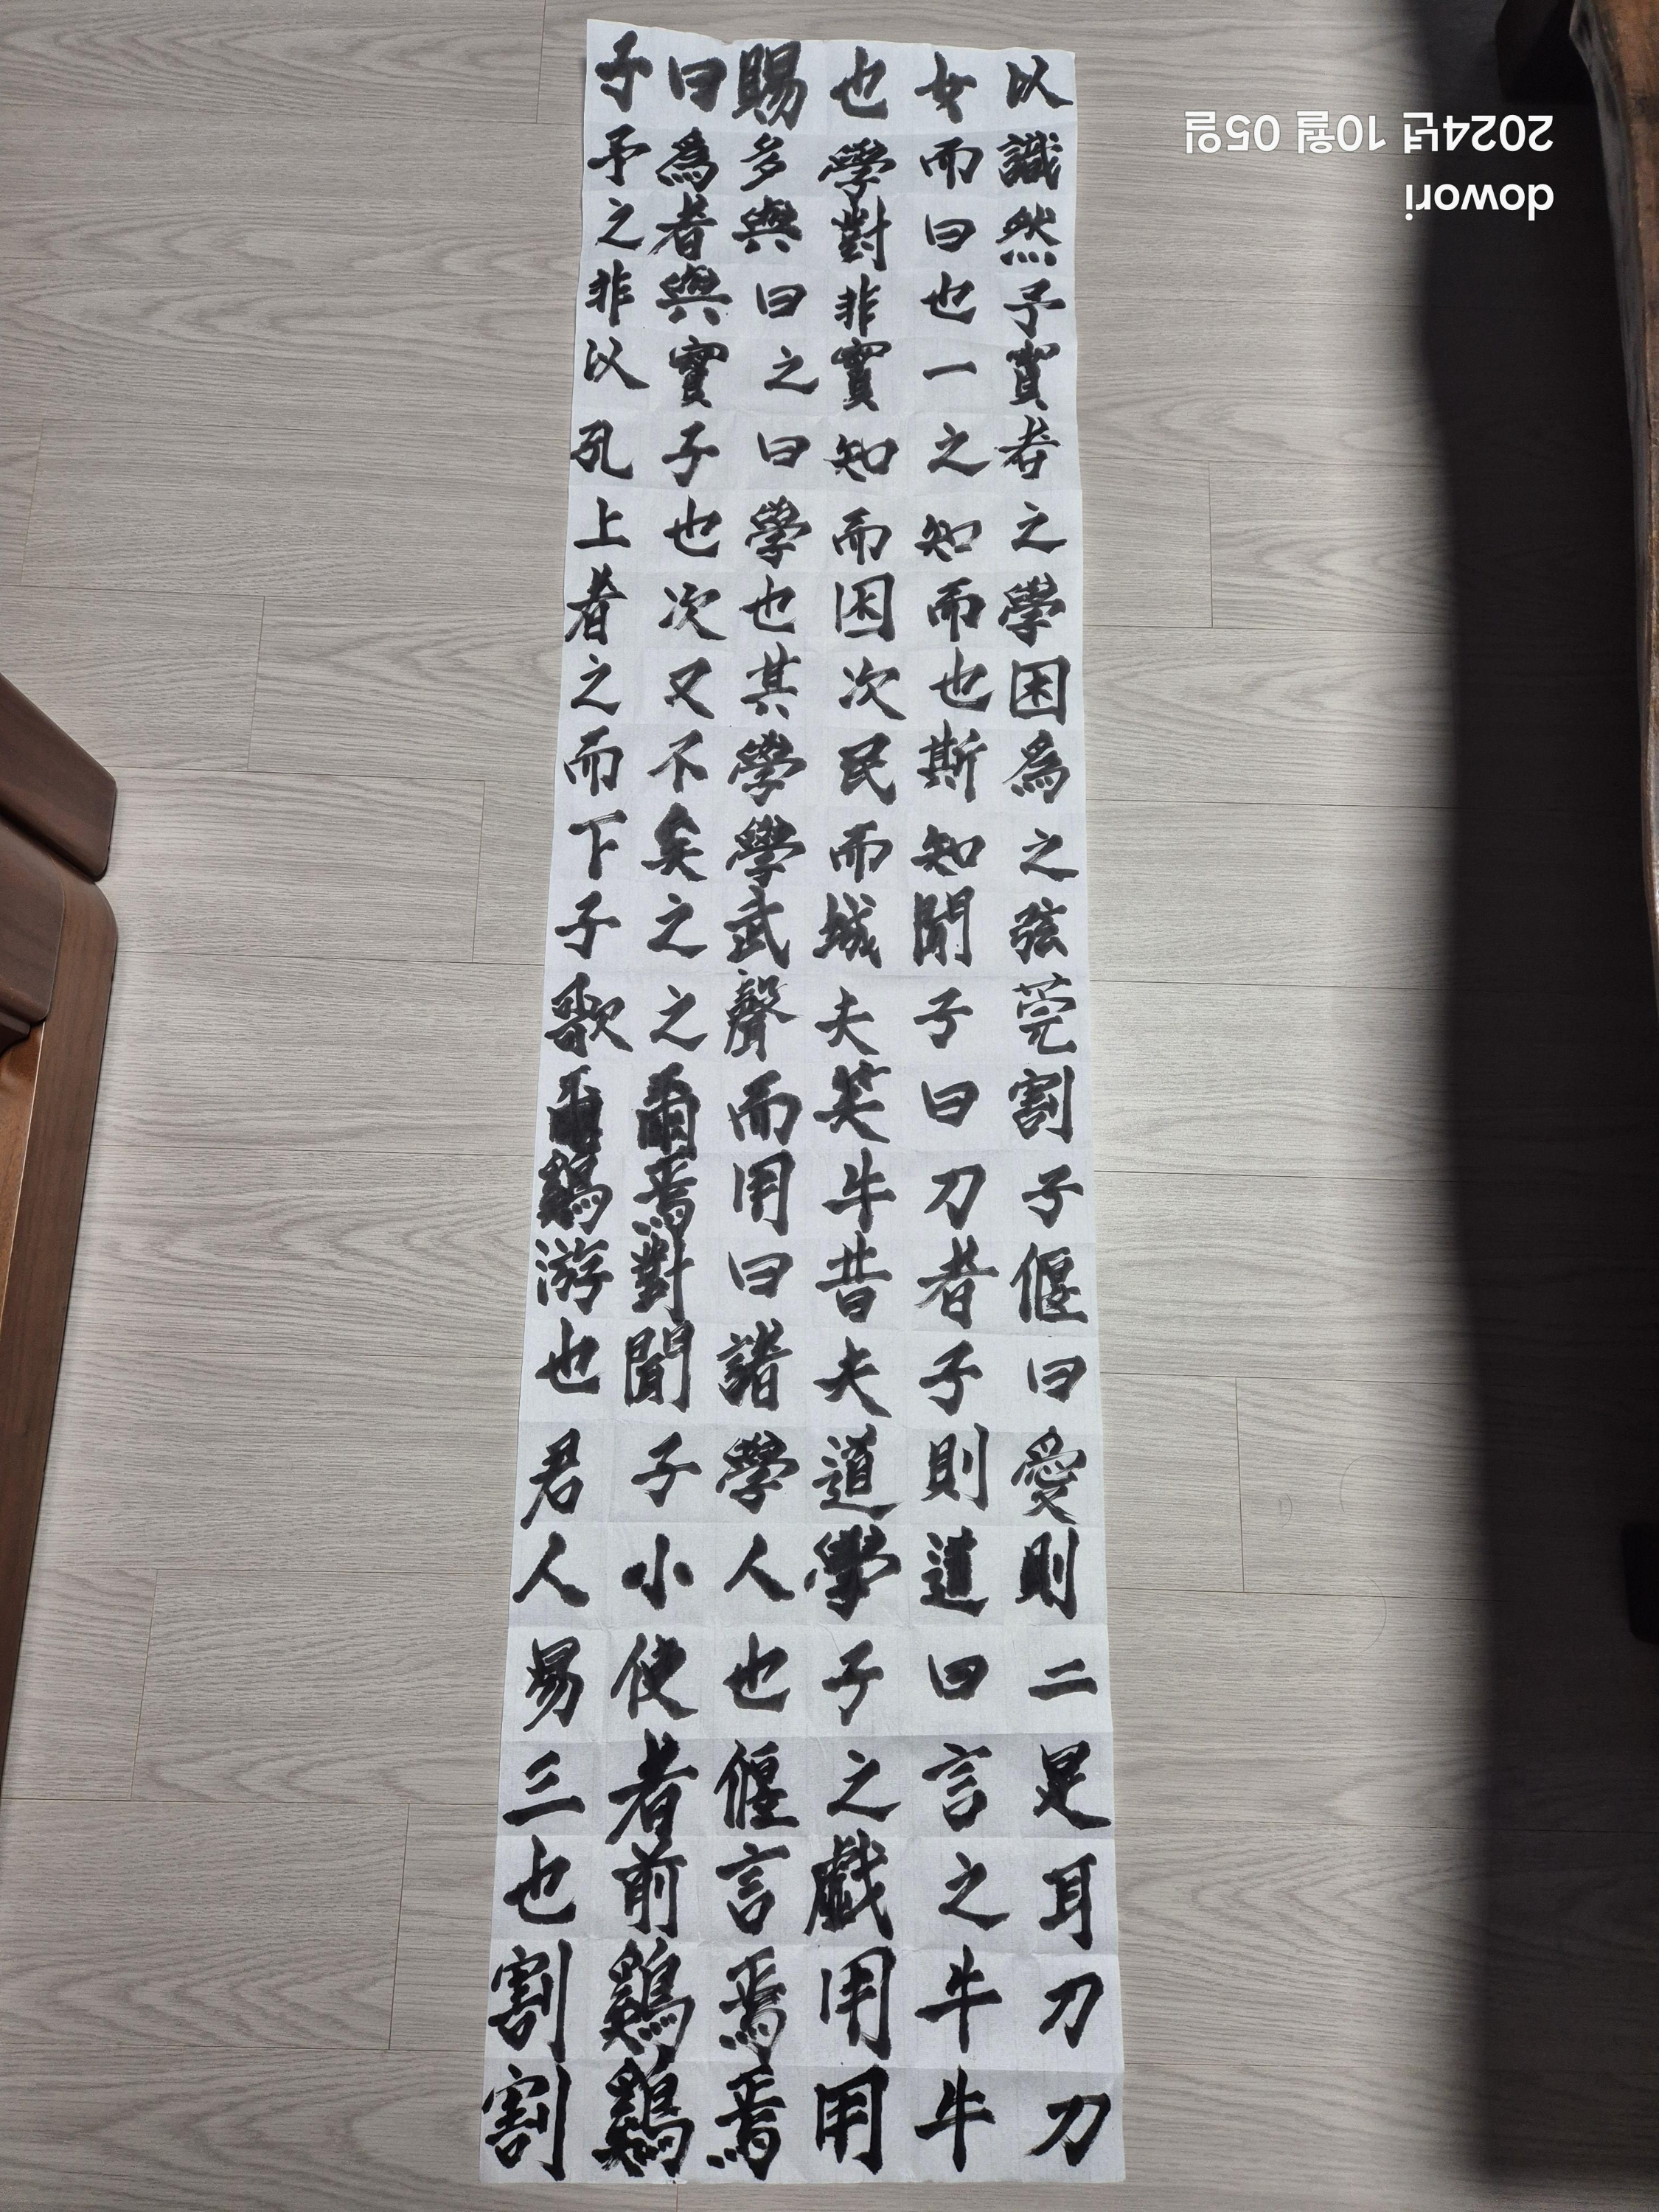 子曰賜也女以
予爲多學而識
之者與對曰然
非與曰非也予
以實之實一貫
孔子曰知之者
上也學而知之
者次也困而學
之又其次也困
而不學民斯爲
下矣學而知之
子之武城聞弦
歌之聲夫子莞
爾爾而笑曰割
鷄焉用牛刀子
游對曰昔者偃
也聞諸夫子曰
君子學道則愛
人小人學道則
易使也子曰二
三者偃之言是
也前言戲之耳
割鷄焉用牛刀
割鷄焉用牛刀
dowori
2024년 10월 05일